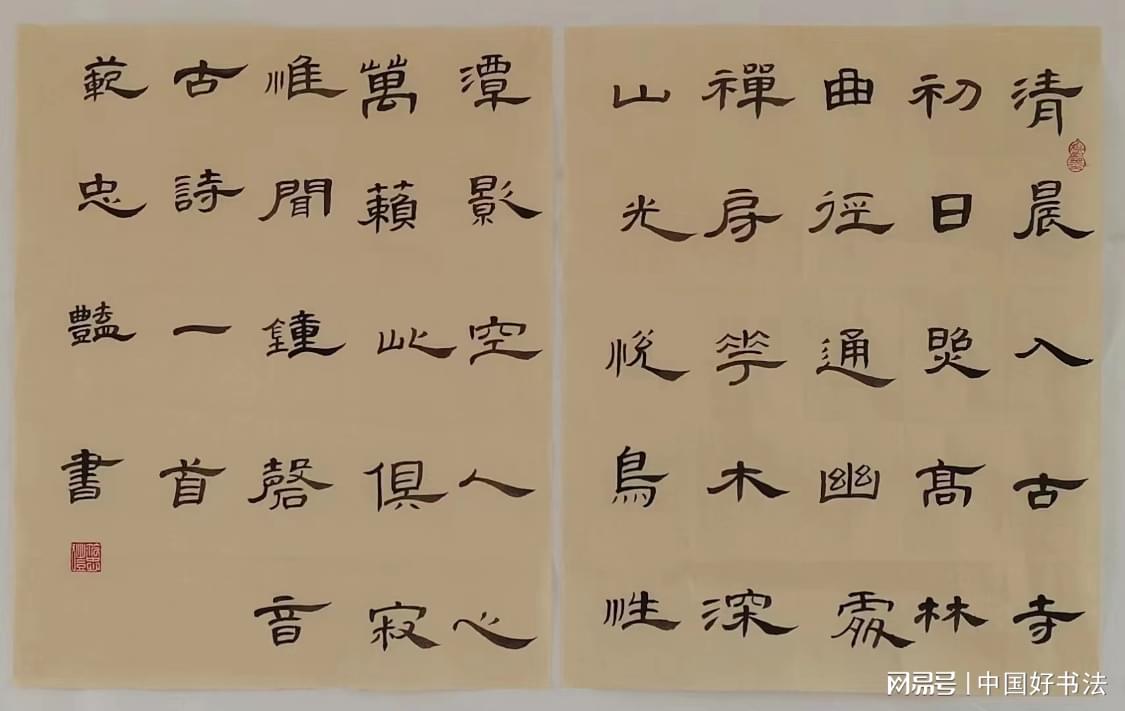 清晨入古寺
初日照髙林
曲徑通幽處
禪房華木深
山光悅鳥性
潭影空人心
萬籟此俱寂
惟聞鐘磬音
古詩一首
範忠豔書
网易号 | 中国好书法